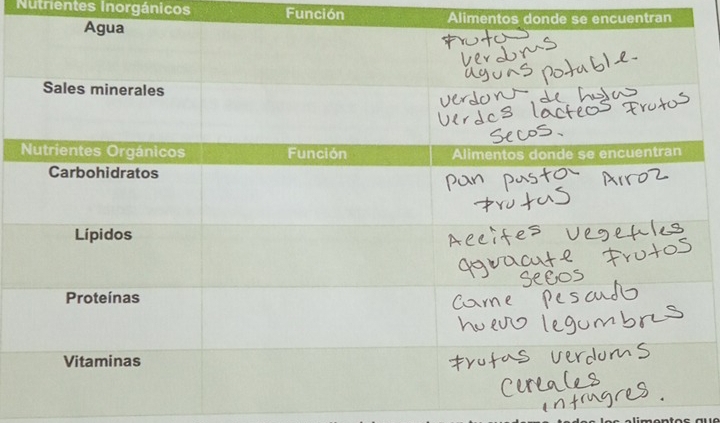 Nutrientes Inorgánicos Función Alimentos donde se encuentran
Agua
Frutas
verduras
aguas potable.
Sales minerales
verdura de hojas
verdes lacteos Frutos
secos.
Nutrientes Orgánicos Función Alimentos donde se encuentran
Carbohidratos
pan pasta Arroz
Frutas
Lípidos
Aceites vegetales
aguacate Frutos
secos
Proteínas
carne pescado
huevo legumbres
Vitaminas
Frutas verduras
cereales
intragres.
todos los alimentos que